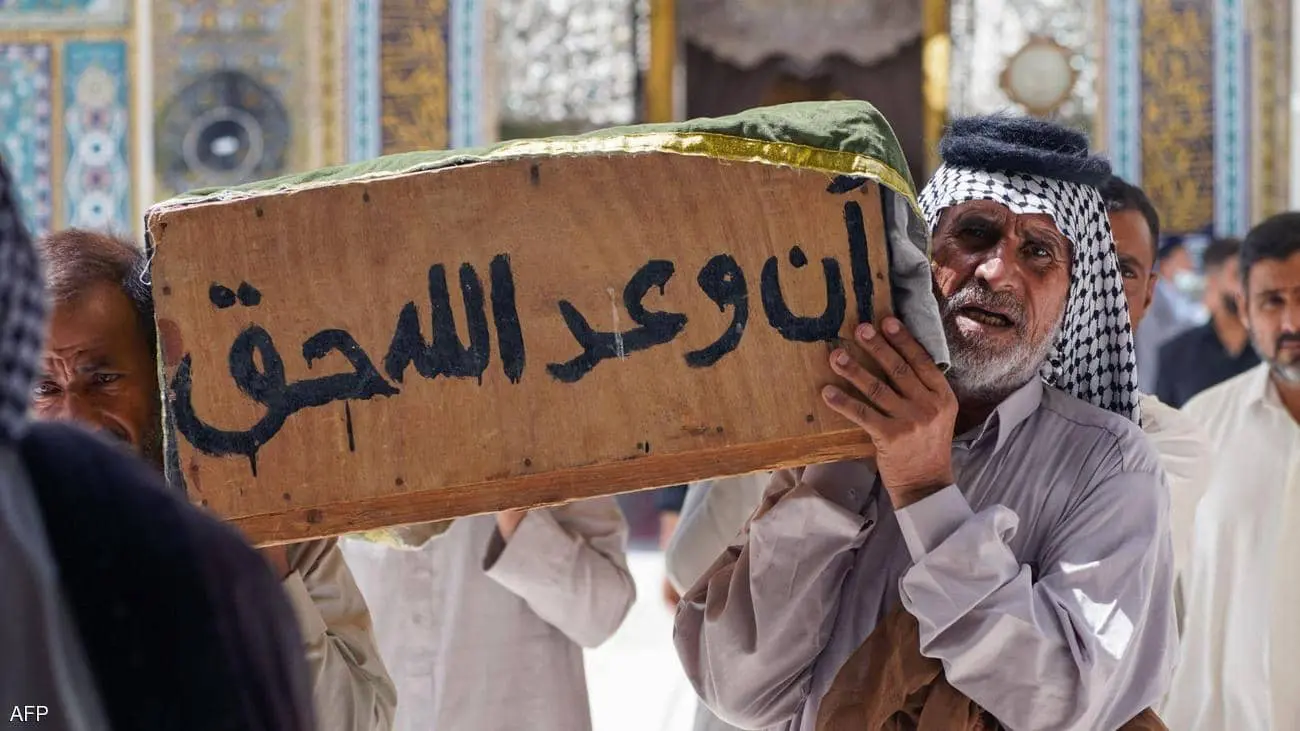 أن وعد الله حق
AFP